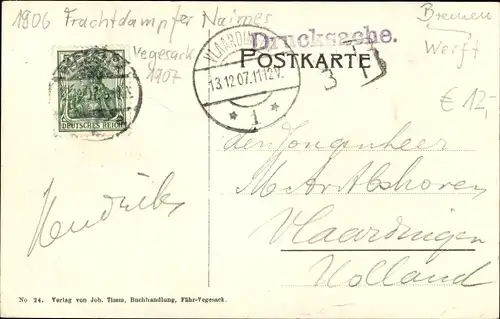 1906 Frachtdampfer Naimes
Bremen
Vegesack
1907
Werft
Drucksache.
POSTKARTE
VLAARDIN
13.12.07.11-12V.
1
DEUTSCHES REICH
3
€ 12,-
den Jongenheer
Vlaardingen
Holland
Hendrik
No 24. Verlag von Joh. Thum, Buchhandlung, Fähr-Vegesack.